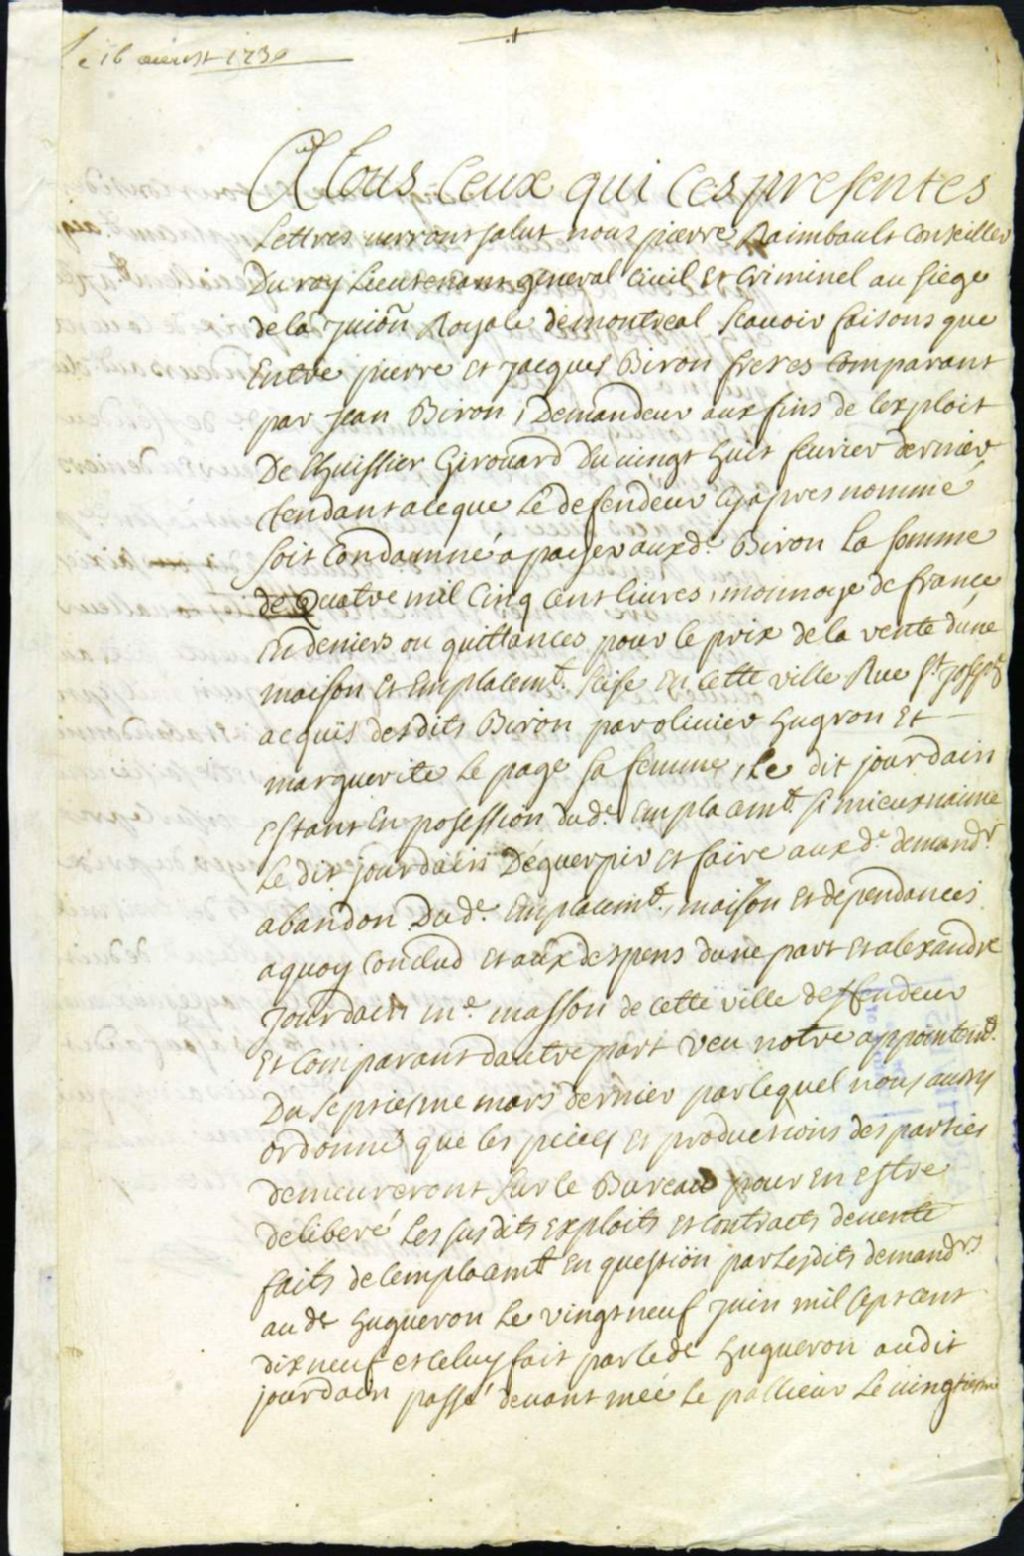 Le 16 aoust 1730
A tous ceux qui ces presentes
Lettres verront salut nous pierre Raimbault Conseiller
Du roy Lieutenant general Civil Et Criminel au siege
de la Juion Royale de montreal scavoir faisons que
Entre pierre et jacques Biron freres Comparant
par jean Biron, Demandeur aux fins de lexploit
De lhuissier Girouard Du vingt huit fevrier dernier
tendant a ceque Le defendeur Cy apres nommé
soit Condamné a payer auxd. Biron La somme
de Quatre mil Cinq cent livres, monnoye de france
En deniers ou quittances pour le prix de la vente d'une
maison Et Emplacemt. scise En cette ville Rue St. joseph
acquis desdits Biron par olivier hugron Et
marguerite Le page sa femme, Le dit jourdain
Estant En posession dud. Emplaamt. si mieux naime
Le dit jourdain Déguerpir et faire auxd. demandr.
abandon Dud. Emplacemt., maison Et dependances
aquoy Conclud et aux despens dune part Et alexandre
Jourdain me. masson de cette ville deffendeur
Et Comparant dautre part Veu notre appointemt.
Du Septiesme mars dernier par lequel nous avons
ordonné que les pieces et productions des parties
demeureront sur le Bureau pour En Estre
deliberé Les susdits Exploits et Contracts de vente
faits de lemplaamt En question par Lesdits demandrs
au dt hugueron Le vingt neuf juin mil sept cent
dix neuf et celuy fait par led. hugueron audit
jourdain passé devant mée Le pallieur Le vingtiesme